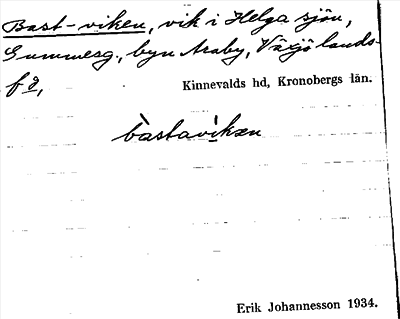 Bast-viken, vik i Helga sjön,
Gummesg., byn Araby, Växjö lands-
f ö,
Kinnevalds hd, Kronobergs län.
bàstavìkən
Erik Johannesson 1934.